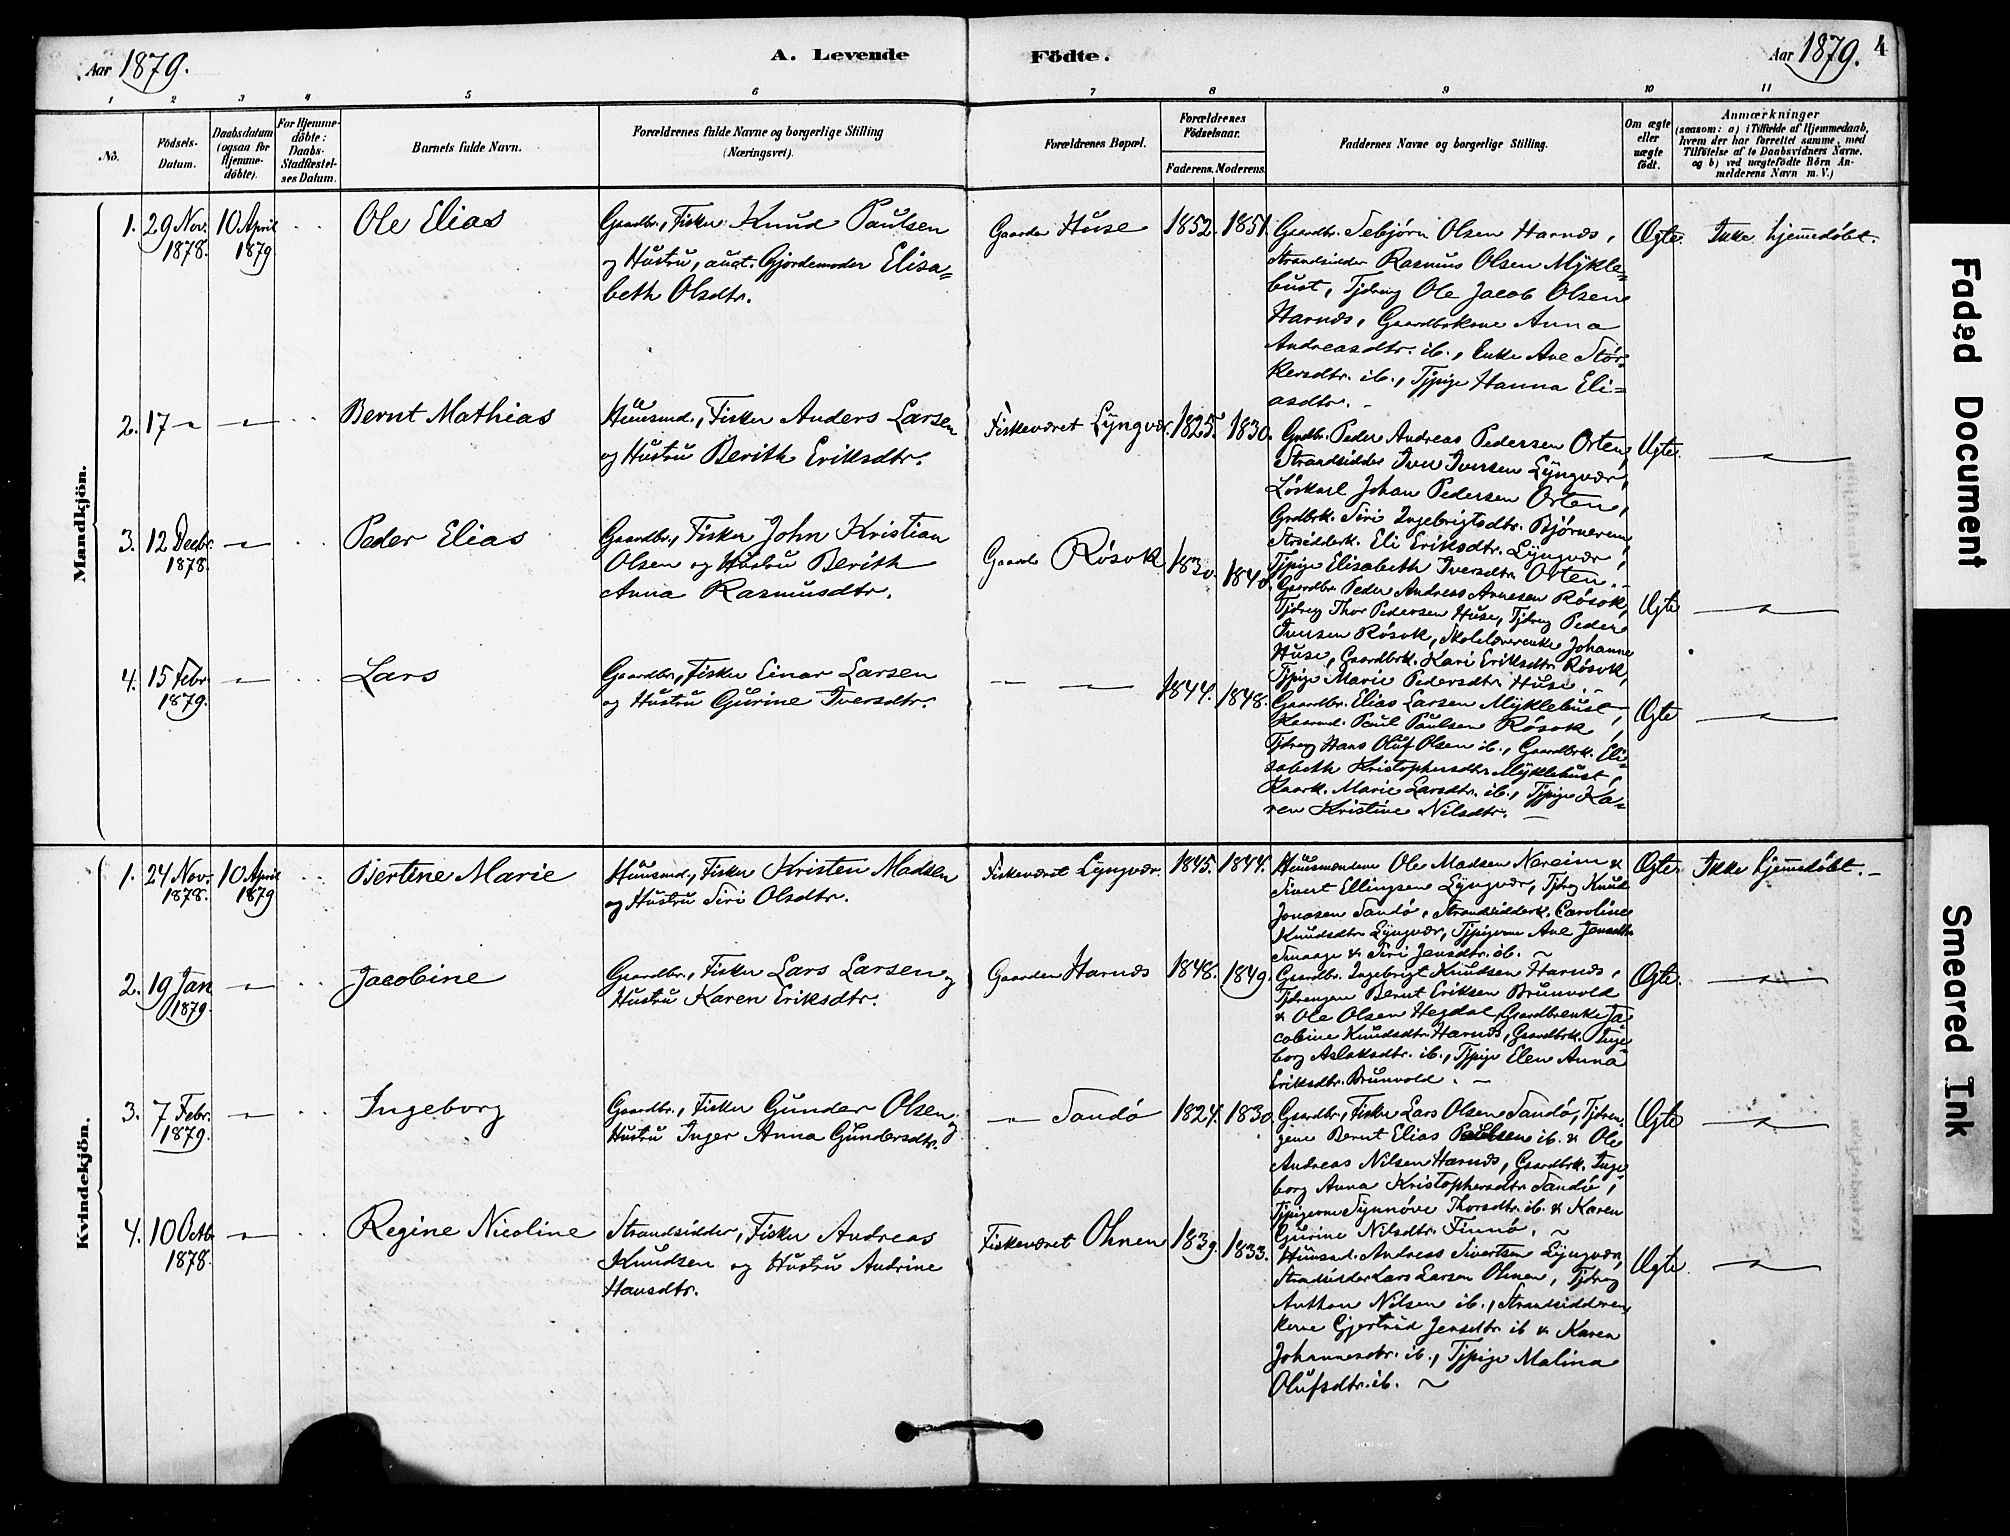 Aar 1879.
A. Levende Födte.
Aar 1879. 4
1 2 3 4 5 6 7 8 9 10 11
No.
Födsels-
Datum.
Daabsdatum
(ogsaa for
Hjemme-
döbte).
For Hjemme-
döbte:
Daabs-
Stadfæstel-
ses Datum.
Barnets fulde Navn.
Forældrenes fulde Navne og borgerlige Stilling
(Næringsvei).
Forældrenes Bopæl.
Forældrenes
Födselsaar.
Faderens. Moderens.
Faddernes Navne og borgerlige Stilling.
Om ægte
eller
uægte
födt.
Anmærkninger
(saasom: a) i Tilfælde af Hjemmedaab,
hvem der har forrettet samme, med
Tilföielse af to Daabsvidners Navne.
og b) ved uægtefödte Börn An-
melderens Navn m. V.)
Mandkjön.
1. 29 Nov.
1878.
10 April
1879
Ole Elias
Gaardbr., Fisker Knud Paulsen
og Hustru, auct. Gjordemoder Elisa=
beth Olsdtr.
Gaarden Huse
1852. 1851.
Gaardbr. Sebjørn Olsen Harnæs,
Strandsidder Rasmus Olsen Mykle=
bust, Tjdreng Ole Jacob Olsen
Harnæs, Gaardbrkone Anna
Andreasdtr. ib., Enke Ane Stor-
kersdtr. ib., Tjpige Hanna Eli=
asdtr. -
Ægte.
Ikke hjemmedøbt.
2. 17 "
"
Bernt Mathias
Huusmd., Fisker Anders Larsen
og Hustru Berith Eriksdtr.
Fiskeværet Lyngvær.
1825. 1830.
Grdbr. Peder Andreas Pedersen Orten,
Strandsidder Iver Iversen Lyngvær,
Løskarl Johan Pedersen Orten,
Grdbrk. Siri Ingebrigtsdtr. Bjørnerem,
Strsidderk. Eli Eriksdtr. Lyngvær,
Tjpige Elisabeth Iversdtr. Orten. -
Ægte.
"
3. 12 Decbr.
1878.
"
Peder Elias
Gaardbr., Fisker John Kristian
Olsen og Hustru Berith
Anna Rasmusdtr.
Gaarde Røsok
1830. 1840.
Gaardbr. Peder Andreas Arnesen Røsok,
Tjdreng Thor Pedersen Huse, Tjdreng Peder
Iversen Røsok, Skolelærerenke Johanne
Huse, Gaardbrk. Kari Eriksdtr. Røsok,
Tjpige Marie Pedersdtr. Huse. -
Ægte
"
4. 15 Febr.
1879.
"
Lars
Gaardbr., Fisker Einar Larsen
og Hustru Gurine Iversdtr.
" "
1844. 1848.
Gaardbr. Elias Larsen Myklebust,
Kaarmd. Paul Paulsen Røsok,
Tjdreng Hans Oluf Olsen ib., Gaardbrk. Eli-
sabeth Kristophersdtr. Myklebust,
Kaark. Marie Larsdtr. ib., Tjpige Ka-
ren Kristine Nilsdtr. -
Ægte
"
Kvindekjön.
1. 24 Nov.
1878.
10 April
1879
Bertine Marie
Huusmd., Fisker Kristen Madsen
og Hustru Siri Olsdtr.
Fiskeværet Lyngvær.
1845. 1844.
Huusmændene Ole Madsen Nereim &
Sivert Ellingsen Lyngvær, Tjdreng Knud
Jonasen Sandø, Strandsidderk. Caroline
Knudsdtr. Lyngvær, Tjpigerne Ane Jensdtr.
& Siri Jensdtr. ib. ~
Ægte.
Ikke hjemmedøbt. -
2. 19 Jan
1879.
"
Jacobine
Gaardbr., Fisker Lars Larsen og
Hustru Karen Eriksdtr.
Gaarden Harnæs
1848. 1849.
Gaardbr. Ingebrigt Knudsen Harnæs,
Tjdrengene Bernt Eriksen Brunvold
& Ole Olsen Hegdal, Gaardbrenke Ja
cobine Knudsdtr. Harnæs, Gaardbrk. Inge
borg Aslaksdtr. ib., Tjpige Elen Anna
Eriksdtr. Brunvold. ~
Ægte.
"
3. 7 Febr.
1879.
"
Ingeborg
Gaardbr., Fisker Gunder Olsen og
Hustru Inger Anna Gundersdtr.
" Sandø
1824. 1830.
Gaardbr., Fisker Lars Olsen Sandø, Tjdren-
gene Bernt Elias Paulsen ib. & Ole
Andreas Nilsen Harnæs, Gaardbrk. Inge
borg Anna Kristophersdtr. Sandø,
Tjpigerne Synnøve Thorsdtr. ib. & Karen
Gurine Nilsdtr. Finnø. ~
Ægte
"
4. 10 Octb.
1878.
"
Regine Nicoline
Strandsidder, Fisker Andreas
Knudsen og Hustru Andrine
Hansdtr.
Fiskeværet Ohnen
1839. 1833.
Huusmd. Andreas Sivertsen Lyngvær,
Strandsidder Lars Larsen Ohnen, Tjdreng
Anthon Nilsen ib., Strandsidderen
kerne Gjertrud Jensdtr. ib & Karen
Johannesdtr. ib., Tjpige Malina
Olufsdtr. ib. ~
Ægte.
"
Faded Document
Smeared Ink